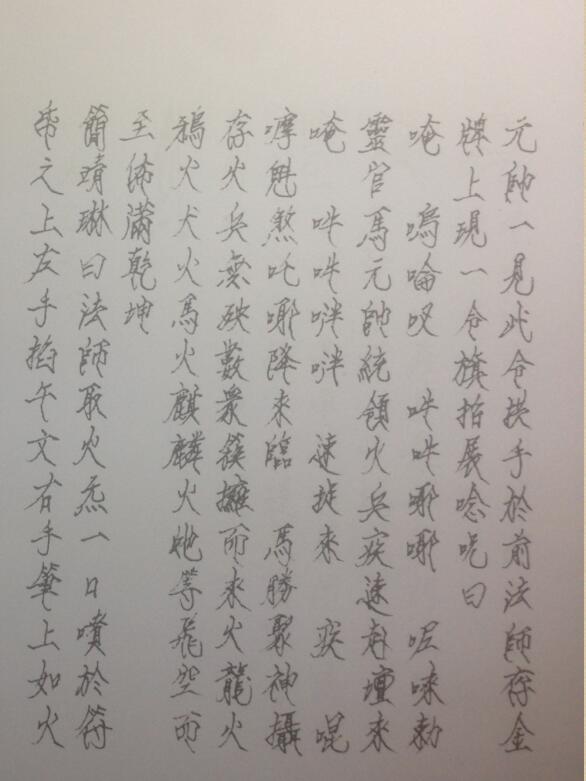 元帥一見此令拱手於前法師存金
牌上現一令旗招展唸咒曰
唵　嗚唵㕛　吽吽哪哪　呢唻勅
靈官馬元帥統領火兵疾速赴壇來
唵　吽吽咩咩　速捉來　疾　啒
嚤魁煞吒哪降來臨　馬勝聚神攝
存火兵無殃數眾簇擁而來火龍火
鴉火犬火馬火麒麟火虵等飛空而
至佈滿乾坤
簡靖琳曰法師取火炁一口噴於符
帋之上左手掐午文右手筆上如火